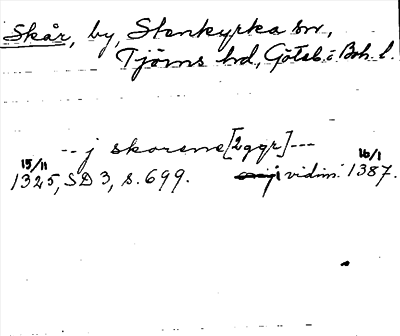 Skår, by, Stenkyrka sn,
Tjörns hd, Göteb. o Boh. l.
-- j skorene [2 ggr] ---
15/11 16/1
1325, SD 3, s. 699. vidim. 1387.